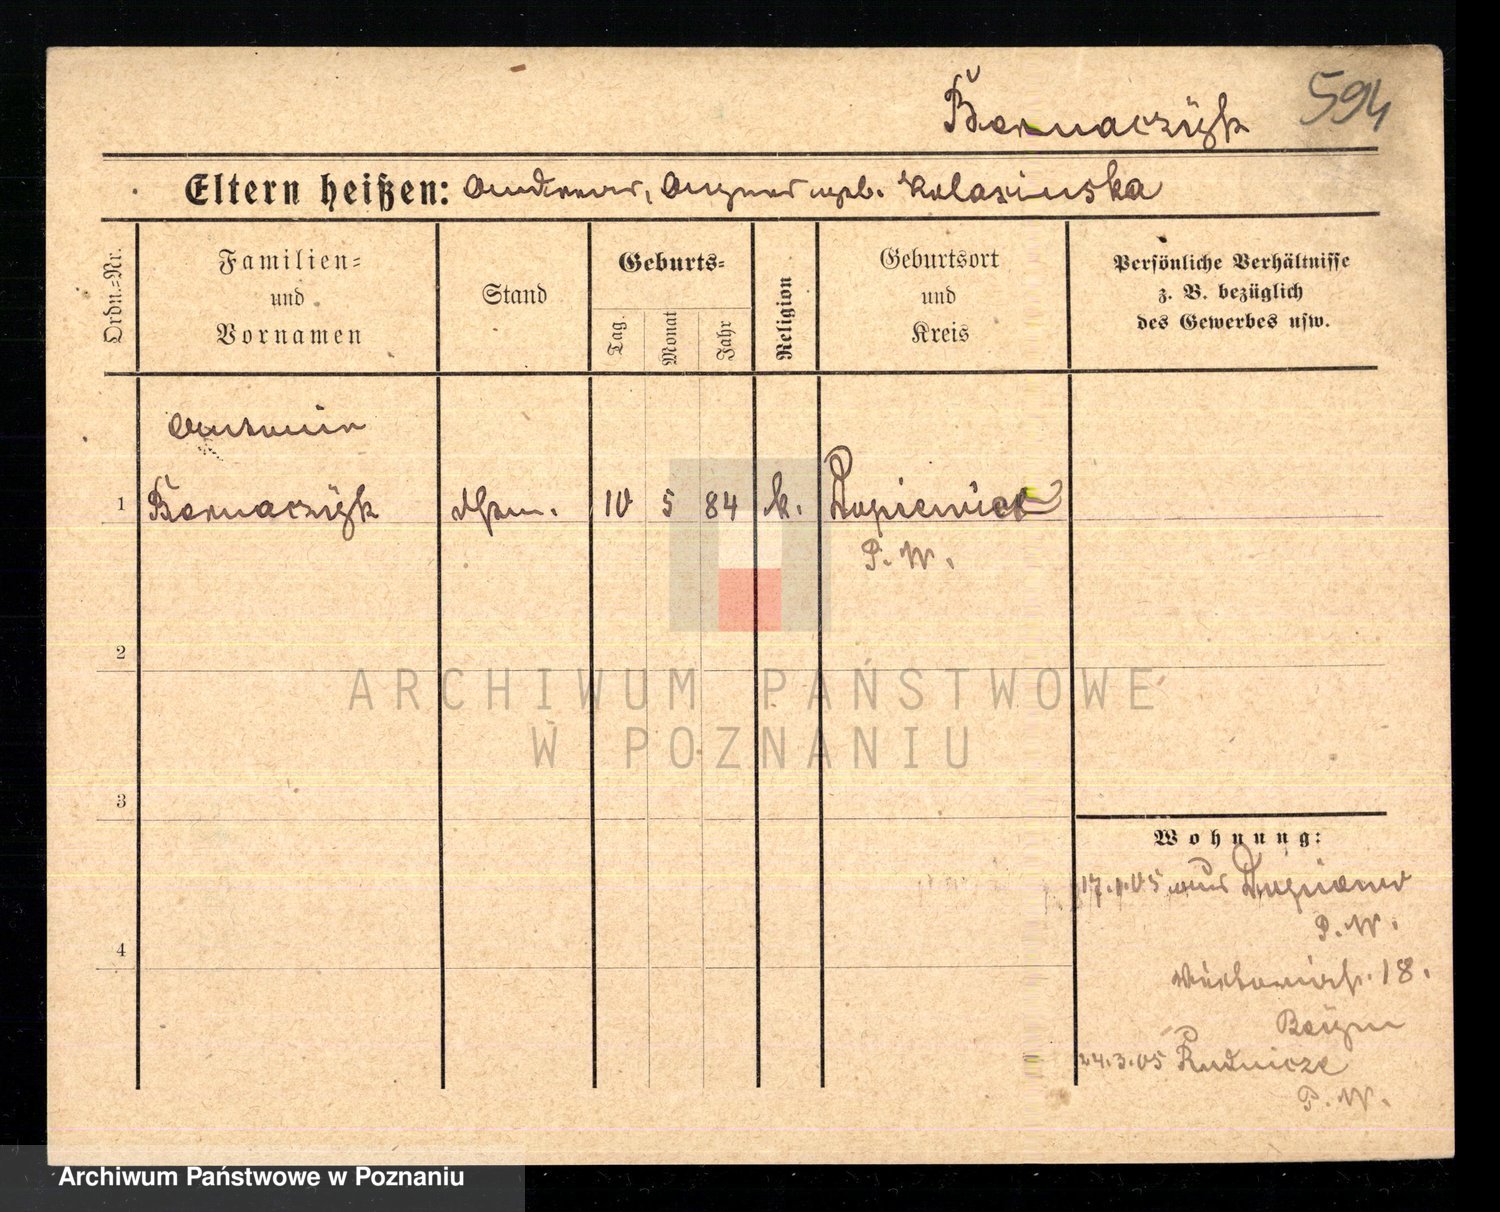 Bernaczÿk 594
Eltern heißen: Andreas, Agnes geb. Kolasinska
Ordn.=Nr.
Familien=
und
Vornamen
Stand
Geburts=
Tag.
Monat
Jahr
Religion
Geburtsort
und
Kreis
Persönliche Verhältnisse
z. B. bezüglich
des Gewerbes usw.
Antonie
1 Bernaczÿk 10 5 84 k.
P. W.
2
ARCHIWUM PAŃSTWOWE
W POZNANIU
3
Wohnung:
17.1.05 aus
P. W.
4
18.
24.3.05 Rudnicze
P. W.
Archiwum Państwowe w Poznaniu